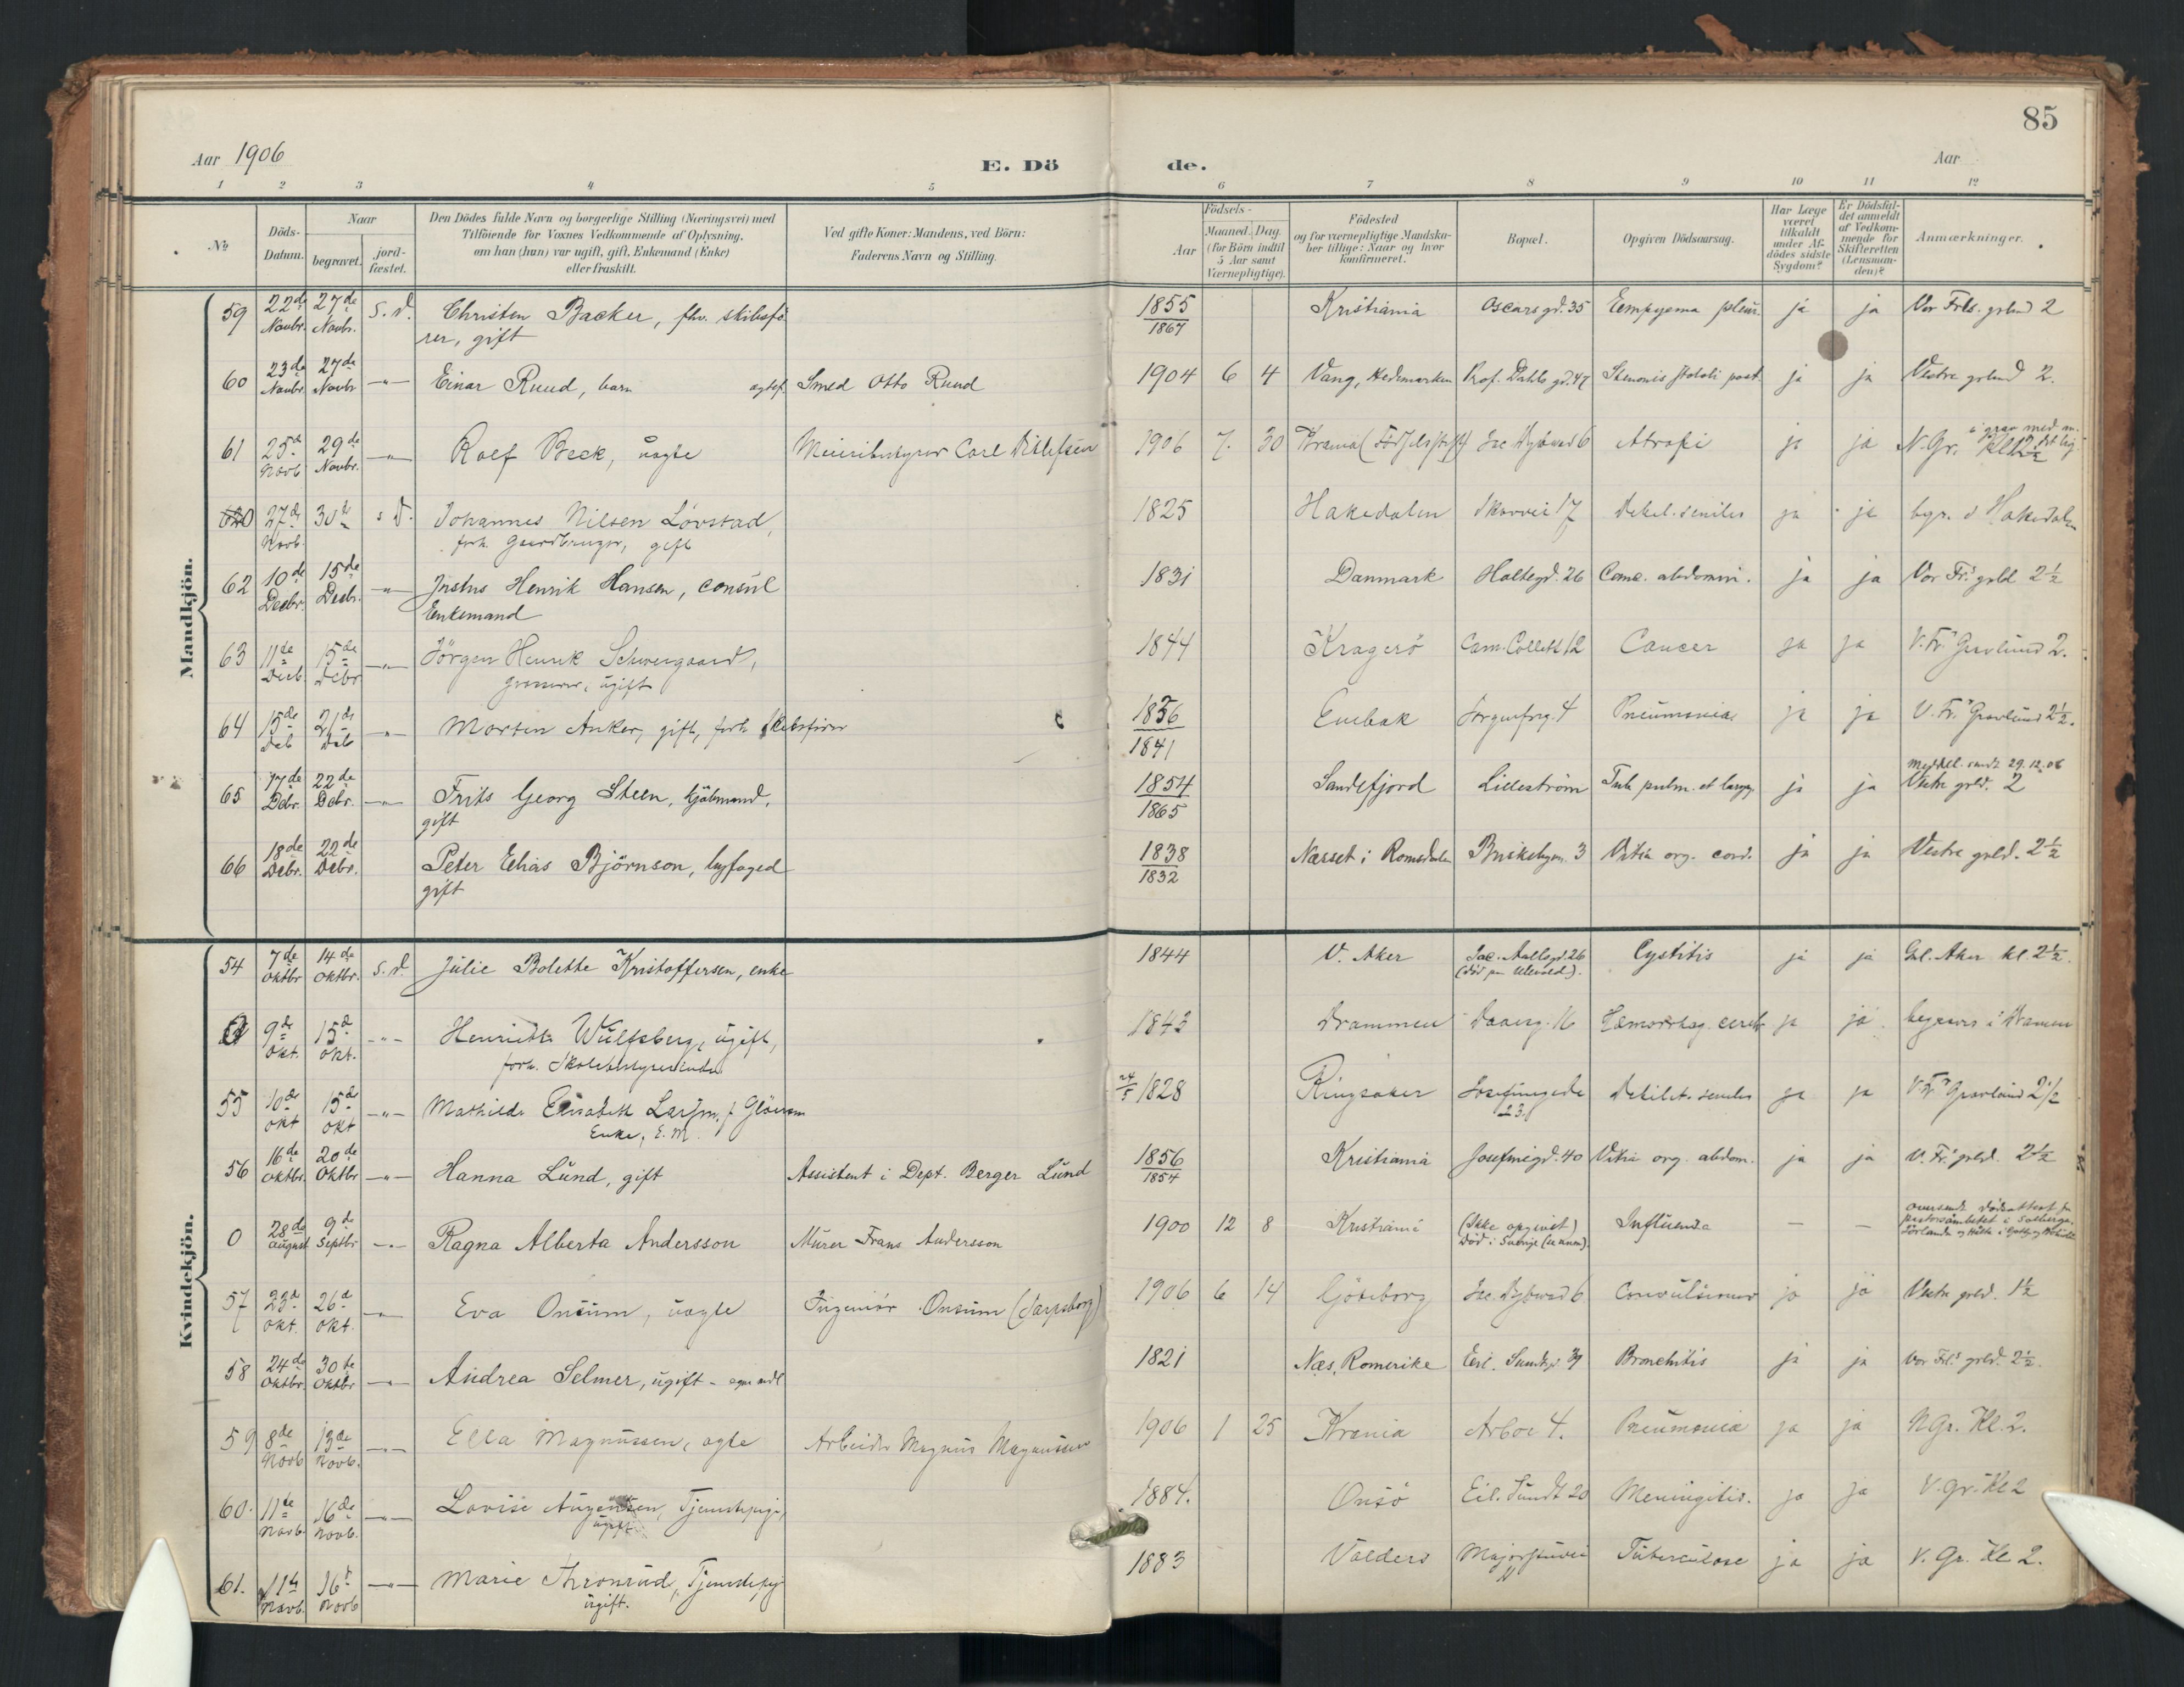 85
Aar 1906
E. Dö
de.
Aar
1 2 3 4 5 6 7 8 9 10 11 12
No
Döds-
Datum.
Naar
begravet.
jord-
fæstet.
Den Dödes fulde Navn og borgerlige Stilling (Næringsvei) med
Tilföiende for Voxnes Vedkommende af Oplysning,
om han (hun) var ugift, gift, Enkemand (Enke)
eller fraskilt.
Ved gifte Koner: Mandens, ved Börn:
Faderens Navn og Stilling.
Födsels-
Aar
Maaned. Dag.
(for Börn indtil
5 Aar samt
Værnepligtige).
Födested
og for værnepligtige Mandska-
ber tillige: Naar og hvor
konfirmeret.
Bopæl.
Opgiven Dödsaarsag.
Har Læge
været
tilkaldt
under Af-
dödes sidste
Sygdom?
Er Dödsfal-
det anmeldt
af Vedkom-
mende for
Skifteretten
(Lensman-
den)?
Anmærkninger.
Mandkjön.
59 22de Novbr. 27de Novbr. s. d. Christen Backer, fhv. skibsfö-
rer, gift
1855 Kristiania Oscarsgd. 35 Eempyema pleur. ja ja Vor Frls. grlund 2
1867
60 23de Novbr. 27de Novbr. -"- Einar Ruud, barn ægtef. Smed Otto Ruud 1904 6 4 Vang, Hedemarken Prof. Dahls gd. 47 ja ja Vestre grlund 2.
61 25d Novb 29de Novbr. -"- Rolf Beck, uægte Meieribestyrer Carl Ditlefsen 1906 7. 30 Jac. Dybwad 6 Atrofi ja ja N. Gr.
27d Novb. 30d s. d. Johannes Nilsen Lövstad,
forh. Gaardbruger, gift
1825 Hakedalen 17 Debil. seniles ja ja begr. i Hakedalen
62 10de Decbr. 15de Decbr. -"- Justus Henrik Hansen, consul
Enkemand
1831 Danmark Holtegd. 26 Canc. abdomin. ja ja Vor Frs grld 2½
63 11de Decb. 15de Decbr -"- Jörgen Henrik Schweigaard,
grosserer, ugift
1844 Kragerö Cam. Collett 12 Cancer ja ja V. Frs Gravlund 2.
64 15de Deb 21de Deb -"- Morten Anker, gift, forh. Skibsförer 1836 Enebak Jörgensfrg. 4 Pneumonia. ja ja V. Frs Gravlund 2½.
1841
65 17de Debr. 22de Debr. -"- Frits Georg Steen, kjöbmand,
gift
1854 Sandefjord Lilleström Tub. pulm. et laryng. ja ja Meddel. sendt 29.12.06
Vestre grld. 2
1865
66 18de Debr. 22de Debr. Peter Elias Björnson, byfoged
gift
1838 Næsset i Romsdalen Briskebyn. 3 Vitia org. cord. ja ja Vestre grld. 2½
1832
Kvindekjön.
54 7de Oktbr 14de Oktbr. s. d. Julie Bolette Kristoffersen, enke 1844 V. Aker Jac. Aallsgd. 26 Cystitis ja ja Gl. Aker kl. 2½.
9de Okt. 15d Okt. -"- Henriette Wulfsberg, ugift,
forh. Skolebestyrerinde
1843 Drammen Daasg. 16 Hæmorrhag. cerebr ja ja begraves i Dramen
55 10de Okt 15de Okt -"- Mathilde Elisabeth Larsen, f. Glöersen
Enke, E. M.
24/5 1828 Ringsaker Josefinegade
23. Debilit. seniles ja ja V. Frs Gravlund 2½
56 16de Oktbr. 20de Oktbr -"- Hanna Lund, gift Assistent i Dept. Berger Lund 1856 Kristiania Josefinegd. 40 Vitia org. abdom. ja ja V. Frs grld. 2½
1854
0 28de August 9de Septbr -"- Ragna Alberta Andersson Murer Frans Andersson 1900 12 8 Kristiania (Ikke opgivet)
Död i Sverige (se anm). Influenza — — oversendt dödsattest fra
57 23d Okt. 26d Okt. -"- Eva Onsum, uægte Ingeniör Onsum (Sarpsborg) 1906 6 14 Göteborg Jac. Dybwad 6 Convulsioner ja ja Vestre grld. 1½
58 24de Oktbr. 30te Oktbr -"- Andrea Selmer, ugift - egne midl 1821 Næs, Romerike Eil. Sundtsgd. 39 Bronchitis ja ja Vor Frls grld. 2½.
59 8de Novb 13de Novb. -"- Ella Magnussen, ægte Arbeider Magnus Magnussen 1906 1 25 Krania Arboe 4. Pneumonia ja ja N. Gr. Kl. 2.
60. 11te Novb. 16de Novb. -"- Lovise Augensen, Tjenestepige,
ugift
1884. Onsö Eil. Sundt 20 Meningitis. ja ja V. Gr. Kl 2
61. 11te Novb. 16d Novb -"- Marie Thronrud, Tjenestepig
ugift.
1883 Valders Majorstuvei Tuberculose ja ja V. Gr. Kl 2.